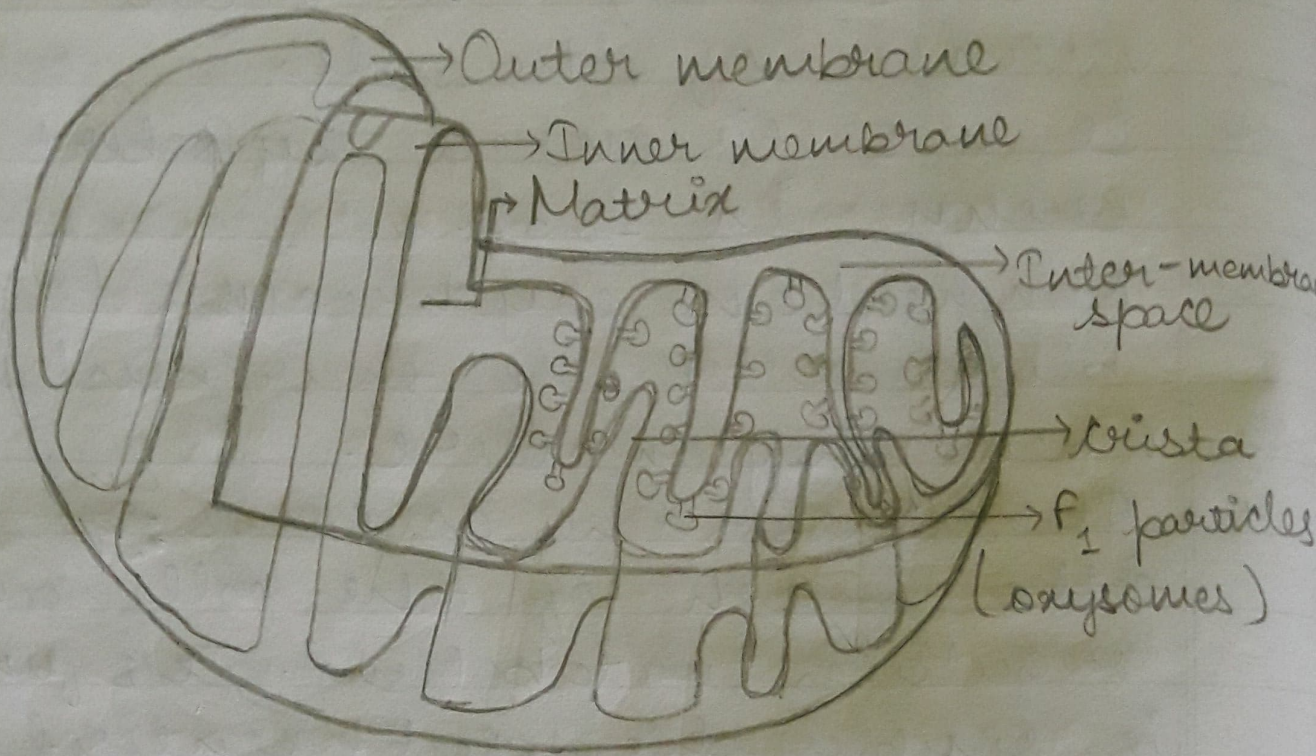 Outer membrane
Inner membrane
Matrix
Inter-membra
space
crista
F₁ particles
(oxysomes)